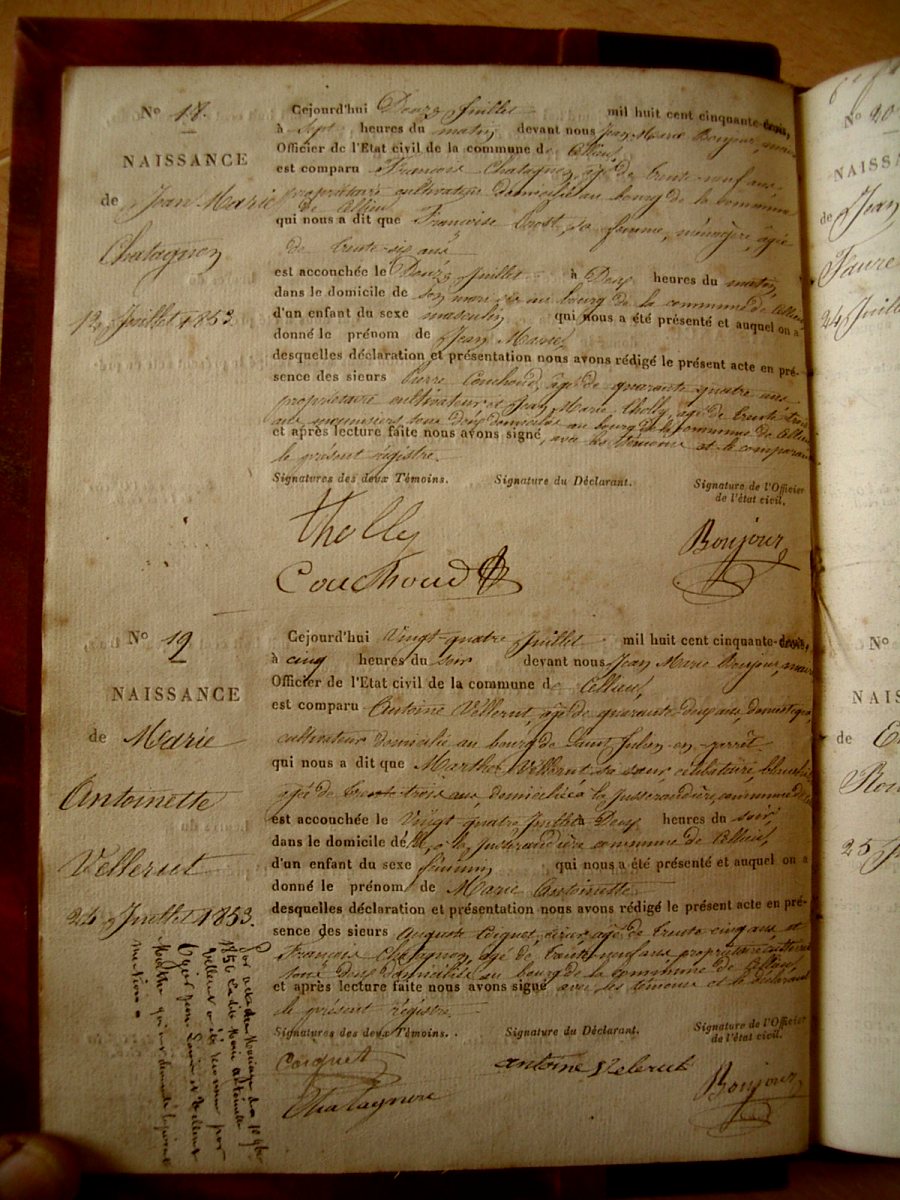 No 18.
NAISSANCE
de Jean Marie
Chatagnon
12 Juillet 1853
Cejourd'hui Douze Juillet mil huit cent cinquante-trois,
à Sept heures du matin devant nous Jean Marie Bonjour, maire
Officier de l'Etat civil de la commune de Cellieu,
est comparu François Chatagnon, âgé de trente-neuf ans,
propriétaire cultivateur domicilié au bourg de la commune
de Cellieu
qui nous a dit que Françoise sa femme, ménagère, âgée
de trente-six ans
est accouchée le Douze Juillet à Deux heures du matin,
dans le domicile de son mari sis au bourg de la commune de Cellieu,
d'un enfant du sexe masculin qui nous a été présenté et auquel on a
donné le prénom de Jean Marie,
desquelles déclaration et présentation nous avons rédigé le présent acte en pré-
sence des sieurs Pierre Couchoud, âgé de quarante quatre ans
propriétaire cultivateur et Jean Marie Tholly, âgé de trente trois
ans tous deux domiciliés au bourg de la commune de Cellieu
et après lecture faite nous avons signé avec les témoins et le comparant
le présent régistre.
Signatures des deux Témoins. Signature du Déclarant. Signature de l'Officier
de l'état civil.
Tholly
Couchoud
Bonjour
No 19
NAISSANCE
de Marie
Antoinette
Vellerut
24 Juillet 1853.
Cejourd'hui Vingt-quatre Juillet mil huit cent cinquante-trois,
à cinq heures du soir devant nous Jean Marie Bonjour, maire
Officier de l'Etat civil de la commune de Cellieu,
est comparu Antoine Vellerut, âgé de quarante-deux ans, domestique,
cultivateur domicilié au bourg de Saint Julien-en-jarrêt
qui nous a dit que Marthe Vellerut sa sœur célibataire,
âgée de trente trois ans, domiciliée à la Jusserandière, commune de
est accouchée le Vingt quatre Juillet à Deux heures du soir
dans le domicile de à la Jusserandière commune de Cellieu,
d'un enfant du sexe féminin qui nous a été présenté et auquel on a
donné le prénom de Marie Antoinette
desquelles déclaration et présentation nous avons rédigé le présent acte en pré-
sence des sieurs Auguste Coignet, âgé de trente-cinq ans, et
François Chatagnon, âgé de trente-neuf ans, propriétaire cultivateur
tous deux domiciliés au bourg de la commune de Cellieu,
et après lecture faite nous avons signé avec les témoins et le déclarant
le présent régistre.
Signatures des deux Témoins. Signature du Déclarant. Signature de l'Officier
de l'état civil.
Coignet
Antoine Velerut
Chatagnon
Bonjour
Par acte de Mariage du 10 9bre
1856 Marie Antoinette
Vellerut a été reconnue par
Marthe
No 20
NAISSAN
de Jean
Faure
24 Juill
No
NAIS
de
25 J